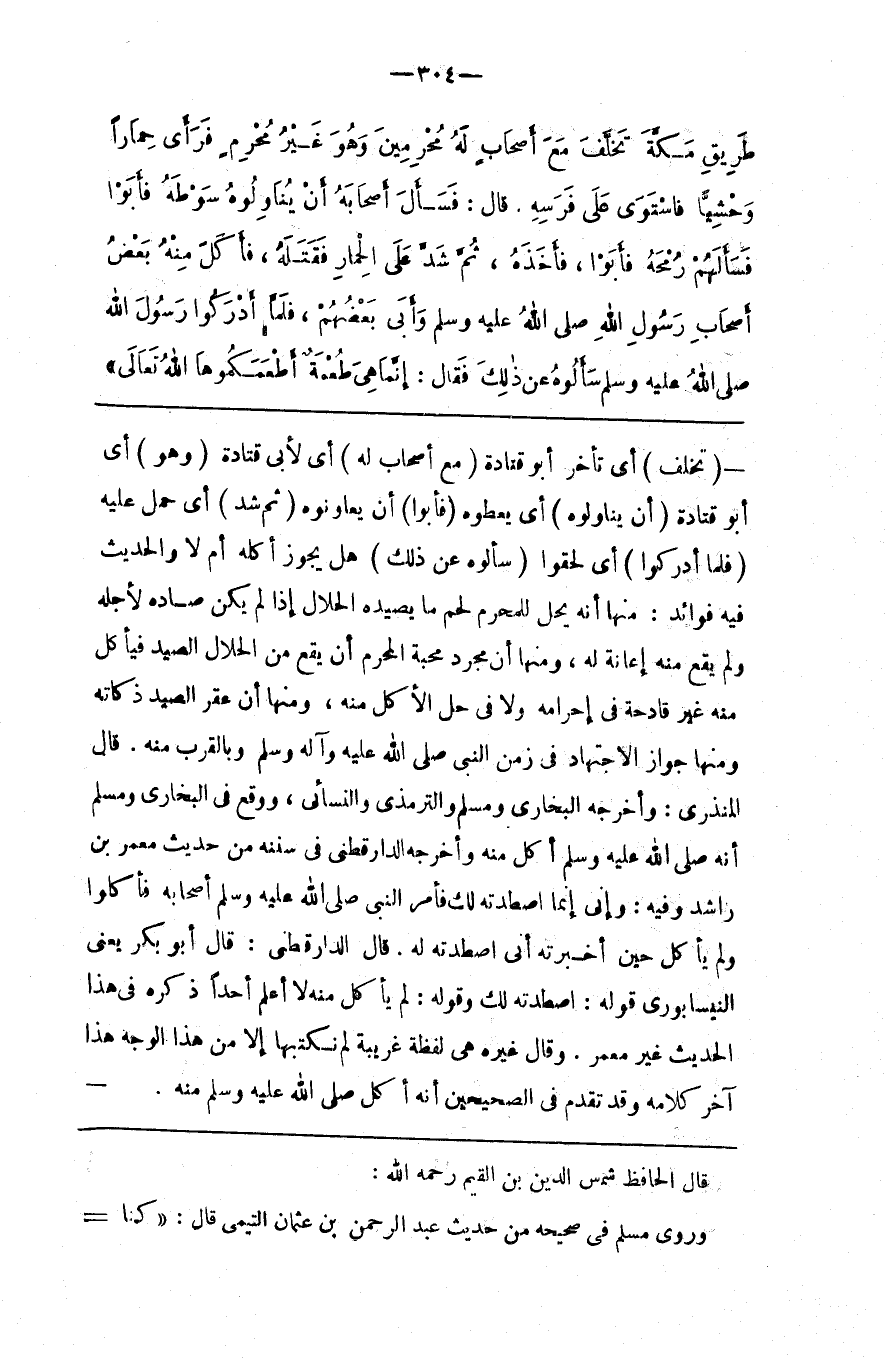 —٣٠٤—
طَرِيقِ مَكَّةَ تَخَلَّفَ مَعَ أَصْحَابٍ لَهُ مُحْرِمِينَ وَهُوَ غَيْرُ مُحْرِمٍ فَرَأَى حِمَاراً
وَحْشِيًّا فاسْتَوَى عَلَى فَرَسِهِ . قال : فَسَأَلَ أَصْحَابَهُ أَنْ يُنَاوِلُوهُ سَوْطَهُ فأَبَوْا
فَسَأَلَهُمْ رُمْحَهُ فأَبَوْا ، فأَخَذَهُ ، ثُمَّ شَدَّ عَلَى الْحِمَارِ فَقَتَلَهُ ، فأَكَلَ مِنْهُ بَعْضُ
أَصْحَابِ رَسُولِ اللهِ صلى اللهُ عليه وسلم وَأَبَى بَعْضُهُمْ ، فَلَمَّا أَدْرَكُوا رَسُولَ الله
صلى اللهُ عليه وسلم سَأَلُوهُ عن ذٰلِكَ فَقال : إنَّمَا هِيَ طُعْمَةٌ أَطْعَمَكُمُوهَا اللهُ تَعَالَى»
—( تخلف ) أى تأخر أبو قتادة ( مع أصحاب له ) أى لأبى قتادة ( وهو ) أى
أبو قتادة ( أن يناولوه ) أى يعطوه (فأبوا) أن يعاونوه ( ثم شد ) أى حمل عليه
( فلما أدركوا ) أى لحقوا ( سألوه عن ذلك ) هل يجوز أكله أم لا والحديث
فيه فوائد : منها أنه يحل للمحرم لحم ما يصيده الحلال إذا لم يكن صاده لأجله
ولم يقع منه إعانة له ، ومنها أن مجرد محبة المحرم أن يقع من الحلال الصيد فيأكل
منه غير قادحة فى إحرامه ولا فى حل الأكل منه ، ومنها أن عقر الصيد ذكاته
ومنها جواز الاجتهاد فى زمن النبى صلى الله عليه وآله وسلم وبالقرب منه . قال
المنذرى : وأخرجه البخارى ومسلم والترمذى والنسائى ، ووقع فى البخارى ومسلم
أنه صلى الله عليه وسلم أكل منه وأخرجه الدارقطنى فى سننه من حديث معمر بن
راشد وفيه : وإنى إنما اصطدته لك فأمر النبى صلى الله عليه وسلم أصحابه فأكلوا
ولم يأكل حين أخبرته أنى اصطدته له . قال الدارقطنى : قال أبو بكر يعنى
النيسابورى قوله : اصطدته لك وقوله : لم يأكل منه لا أعلم أحداً ذكره فى هذا
الحديث غير معمر . وقال غيره هى لفظة غريبة لم نكتبها إلا من هذا الوجه هذا
آخر كلامه وقد تقدم فى الصحيحين أنه أكل صلى الله عليه وسلم منه . —
قال الحافظ شمس الدين بن القيم رحمه الله :
وروى مسلم فى صحيحه من حديث عبد الرحمن بن عثمان التيمى قال : « كنا =